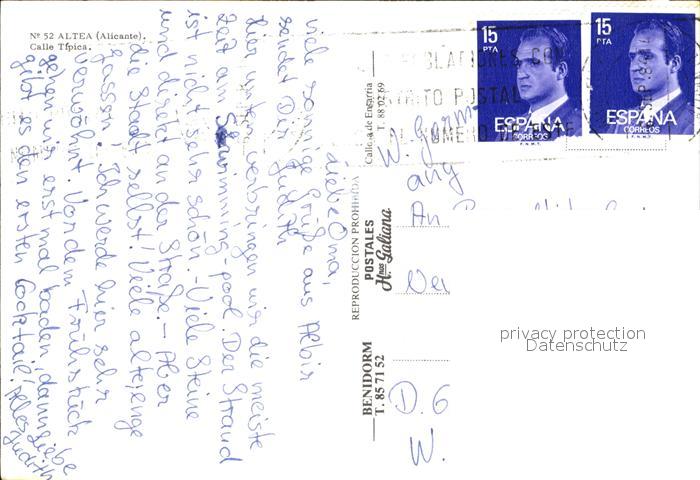 Nº 52 ALTEA (Alicante).
Calle Típica.
Liebe Oma,
viele sonnige Grüße aus Albir
sendet Dir Judith
Hier unten verbringen wir die meiste
Zeit am Swimming-pool. Der Strand
ist nicht sehr schön. - Viele Steine
und direkt an der Straße. - Aber
die Stadt selbst! Viele alte, enge
Gassen! Ich werde hier sehr
verwöhnt. Vor dem Frühstück
gehen wir erst mal baden, dann
gibt es den ersten Cocktail!
Judith
REPRODUCCION PROHIBIDA
POSTALES
Hnos Galiana
BENIDORM
T. 85 71 52
Callosa de Ensarria
T. 88 02 69
15
PTA
ESPAÑA
CORREOS
F.N.M.T.
15
PTA
ESPAÑA
CORREOS
F.N.M.T.
POSTAL
NUMERO
W. Germ
An
D. 6
W.
privacy protection
Datenschutz